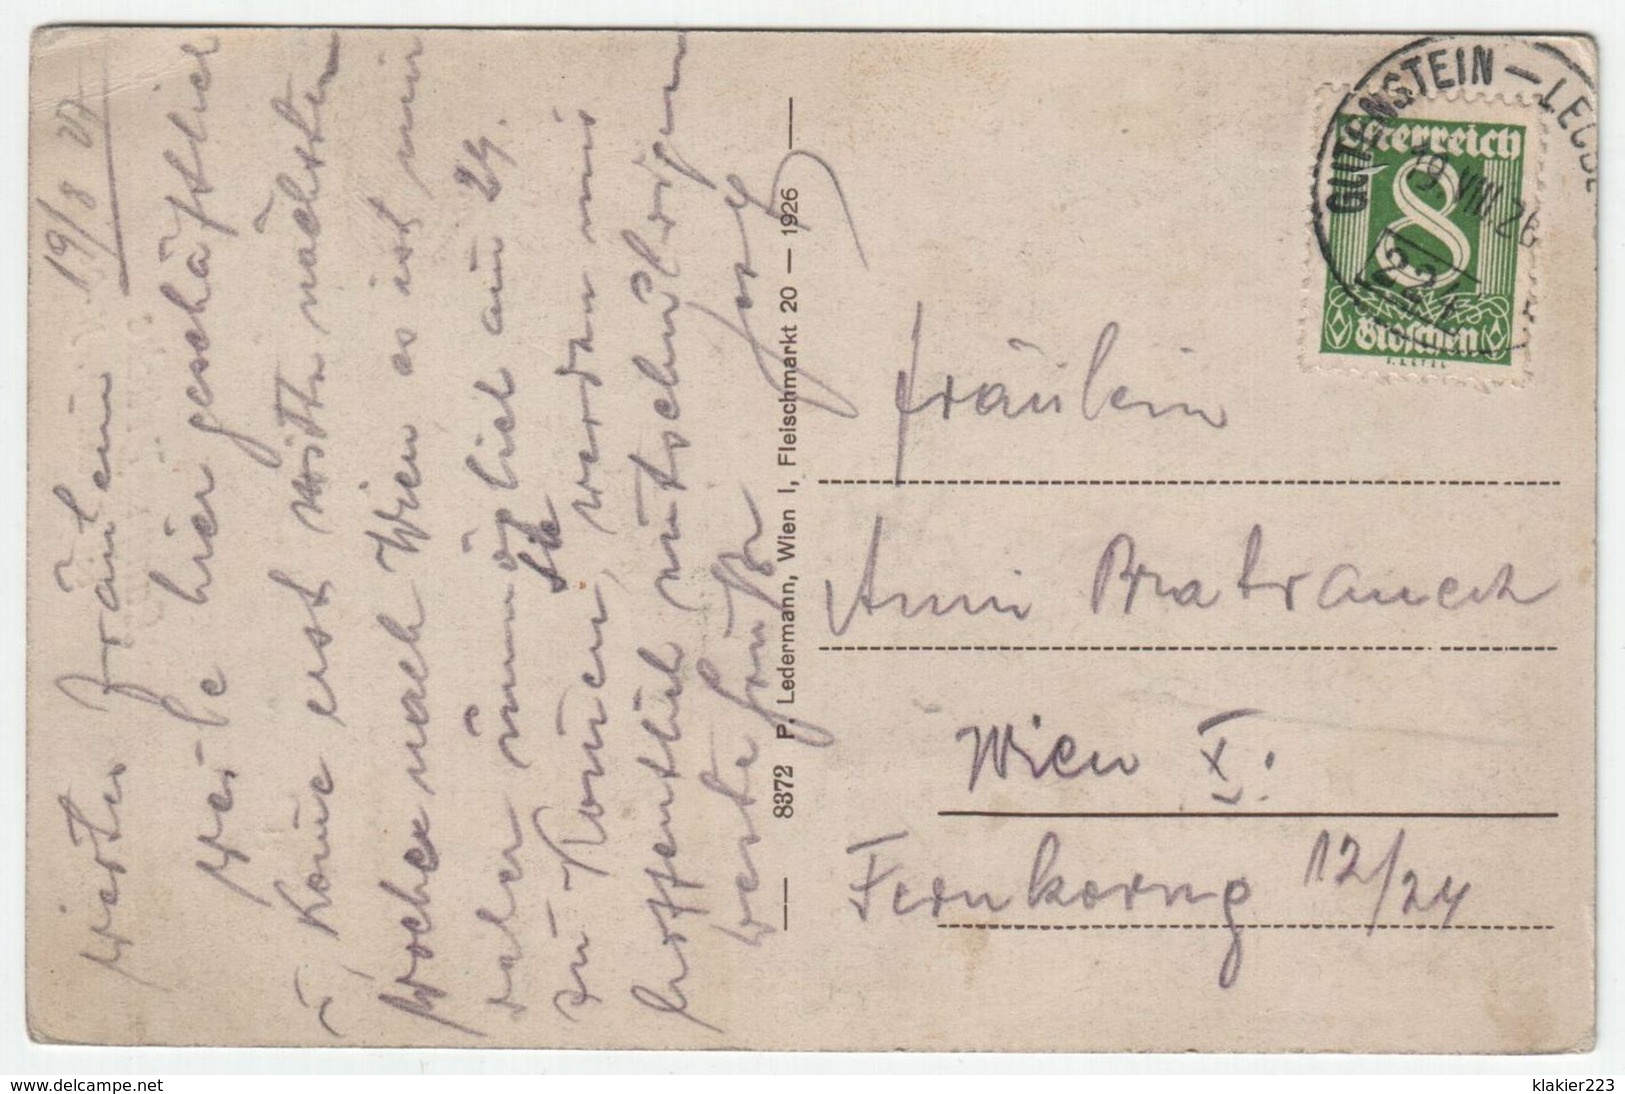 19/8 27
Werter Fräulein
Weile hier geschäftlich
u. kome erst mitte nächsten
Woche nach Wien es ist mir
daher unmöglich am 24.
zu Komen, Sie werden mis
hoffentlich entschuldigen
beste Grüße
Josef
8372 P. Ledermann, Wien I, Fleischmarkt 20 — 1926
GUTENSTEIN — LEOBE
19 VIII 26
224
Österreich
8
Groschen
Fräulein
Anni Bratranek
Wien X.
Fernkorng 12/24
www.delcampe.net
klakier223